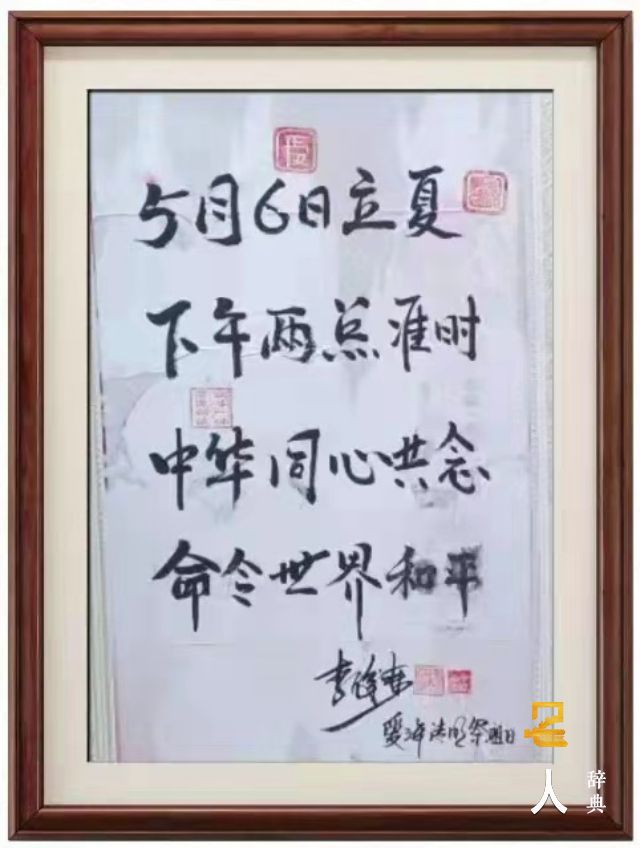 5月6日立夏
下午两点准时
中华同心洪念
命令世界和平
年清明祭祖日
人
辞典